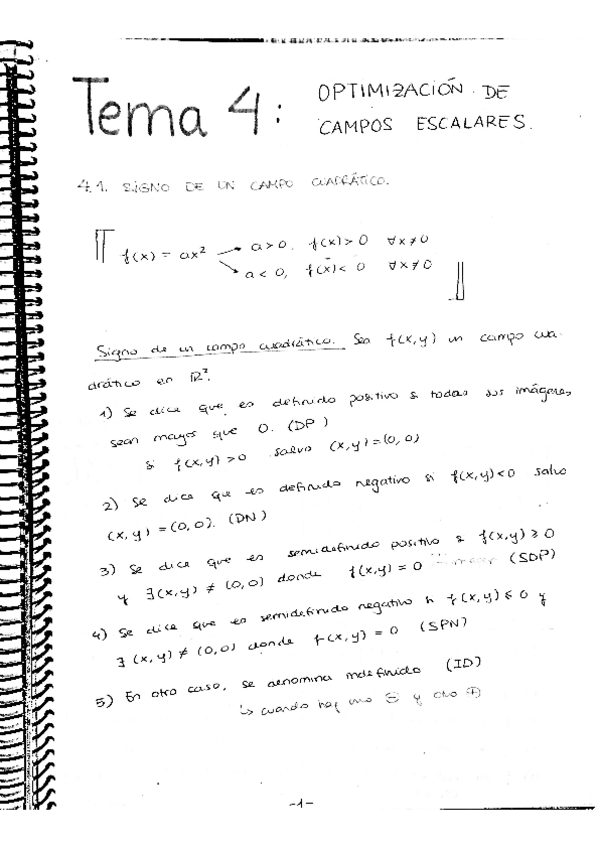 Tema 4: OPTIMIZACIÓN DE
CAMPOS ESCALARES.
4.1. SIGNO DE UN CAMPO CUADRÁTICO.
f(x) = ax² → a>0, f(x)>0 ∀x≠0
↘ a<0, f(x)<0 ∀x≠0
Signo de un campo cuadrático. Sea f(x,y) un campo cua-
drático en ℝ².
1) Se dice que es definido positivo si todas sus imágenes
sean mayores que 0. (DP)
si f(x,y)>0 salvo (x,y)=(0,0)
2) Se dice que es definido negativo si f(x,y)<0 salvo
(x,y)=(0,0). (DN)
3) Se dice que es semidefinido positivo si f(x,y)≥0
y ∃(x,y)≠(0,0) donde f(x,y)=0 (SDP)
4) Se dice que es semidefinido negativo si f(x,y)≤0 y
∃(x,y)≠(0,0) donde f(x,y)=0 (SPN)
5) En otro caso, se denomina indefinido (ID)
↳ cuando hay uno ⊖ y otro ⊕
-1-